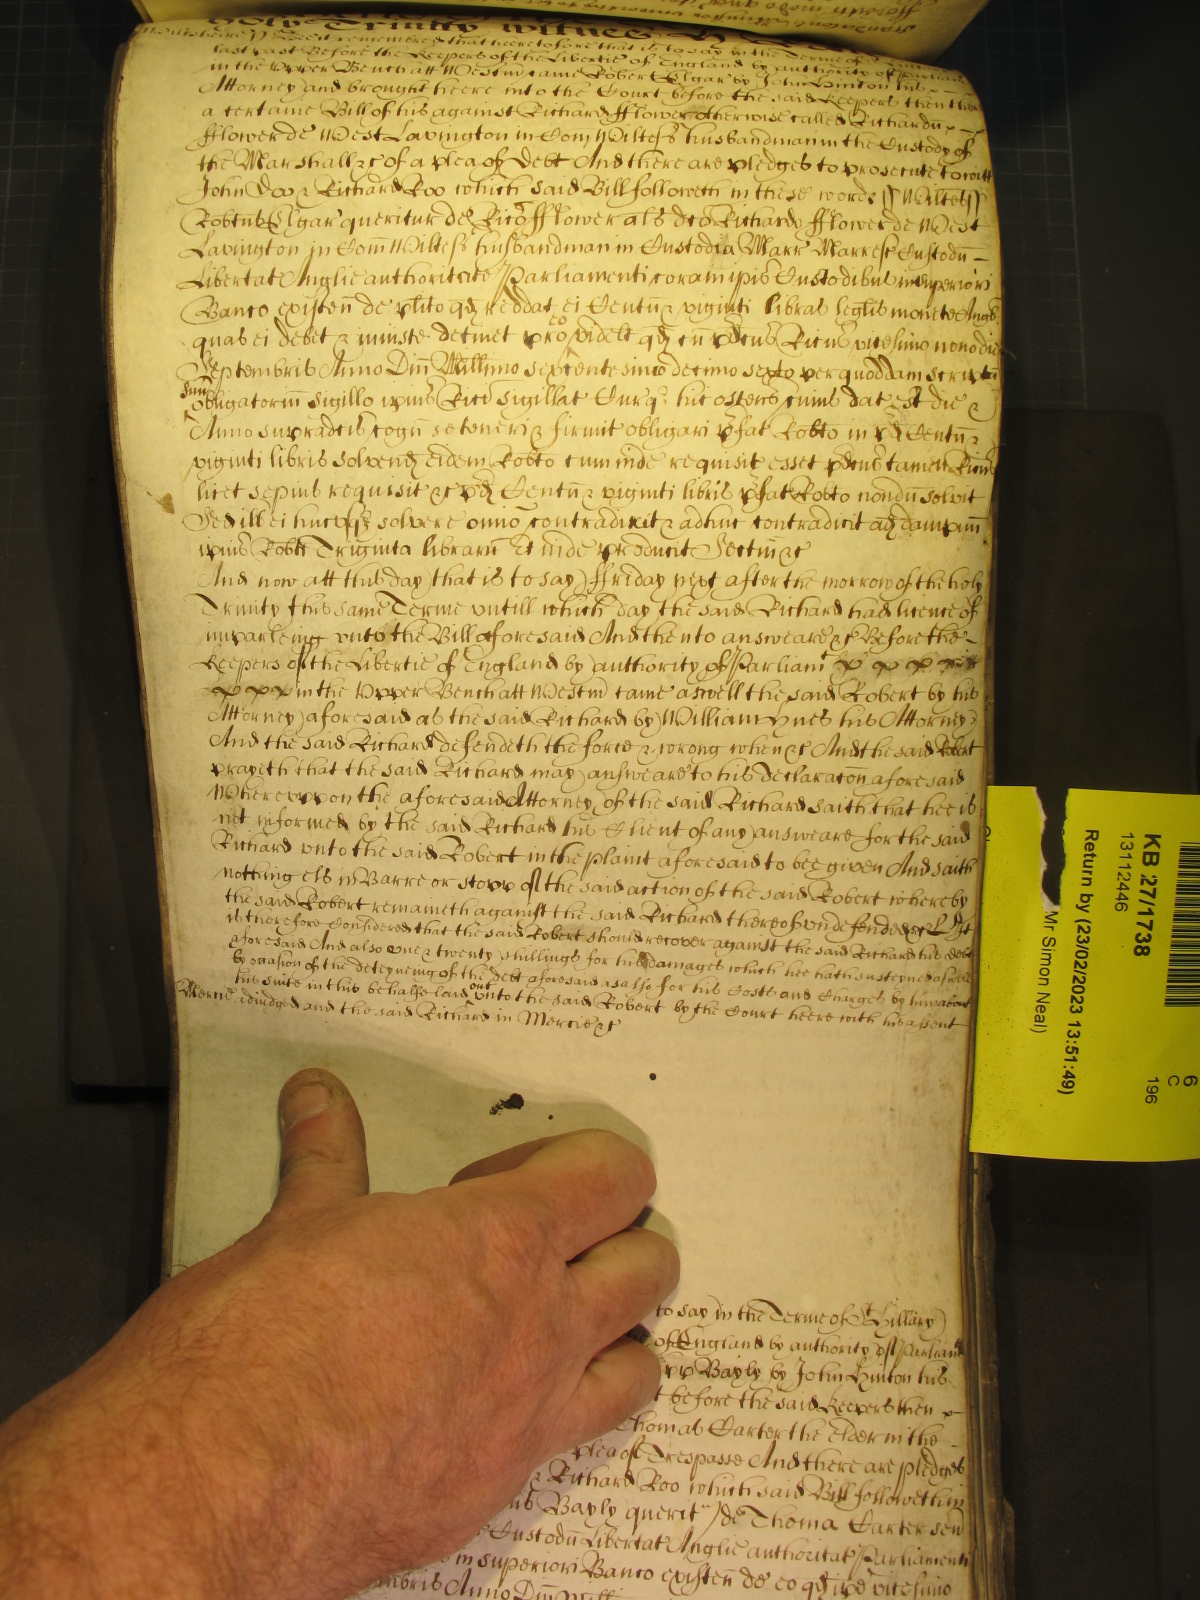 holy Trinity witnes
Wilteshire ss Bee it remembred that heeretofore that is to say in the Terme of
last past Before the Keepers of the Libertie of England by authority of Parliamt
in the Upper Bench att Westmr came Robert Elgar by John Hinton his
Attorney and brought heere into the Court before the said Keepers then there
a certaine Bill of his against Richard fflower otherwise called Richard
fflower de West Lavington in Com Wiltess husbandman in the Custody of
the Marshall &c of a plea of Debt And there are pledges to prosecute to witt
John Doo & Richard Roo which said Bill followeth in these words ss Wiltess ss
Robtus Elgar queritur de Rico fflower als dco Richardo fflower de West
Lavington in Com Wiltess husbandman in Custodia Marr Marress Custodu
Libertat Anglie authoritate Parliamenti coram ipis Custodibus in superiori
Banco existen de plito qd reddat ei Centu & viginti libras leglis monete Angl
quas ei debet & iniuste detinet pro eo videlt qd cu pdcus Ricus vicesimo nono die
Septembris Anno Dni Millimo sexcentesimo decimo sexto per quoddam scriptu
suu obligatoriu sigillo ipius Rici sigillat Curq hic ostens cuius dat est die &
Anno supradcis cogn se teneri & firmit obligari pfat Robto in pd Centu &
viginti libris solvend eidem Robto cum inde requisit esset pdcus tamen Ricus
licet sepius requisit &c pd Centu & viginti libris pfat Robto nondu solvit
Sed ill ei hucusq solvere omio contradixit & adhuc contradicit ad dampnu
ipius Robti Triginta libraru Et inde producit Sectu &c
And now att this day (that is to say) ffriday next after the morrow of the holy
Trinity this same Terme untill which day the said Richard had licence of
imparleing unto the Bill aforesaid And then to answeare &c Before the
Keepers of the Libertie of England by authority of Parliamt
in the Upper Bench att Westmr came aswell the said Robert by his
Attorney aforesaid as the said Richard by William Hynes his Attorney
And the said Richard defendeth the force & wrong when &c And the said Robert
prayeth that the said Richard may answeare to his declaracon aforesaid
Whereuppon the aforesaid Attorney of the said Richard saith that hee is
not informed by the said Richard his Client of any answeare for the said
Richard unto the said Robert in the plaint aforesaid to bee given And saith
nothing els in Barre or stopp of the said action of the said Robert whereby
the said Robert remaineth against the said Richard thereof undefended &c It
is therefore considered that the said Robert should recover against the said Richard his debt
aforesaid And also one & twenty shillings for his damages which hee hath susteyned aswell
by occasion of the deteyneing of the debt aforesaid as also for his Costs and Charges by him about
his suite in this behalfe laid out unto the said Robert by the Court heere with his assent
Mercie adiudged and the said Richard in Mercie &c
to say in the Terme of St Hillary
of England by authority of Parliamt
Bayly by John Hinton his
before the said Keepers then
Thomas Carter the elder in the
plea of Trespasse And there are pledges
& Richard Roo which said Bill followeth in
Bayly querit de Thoma Carter sen
Custodu Libertat Anglie authoritat Parliamenti
in superiori Banco existen de eo qd ipe vicesimo
Anno Dni Mill
KB 27/1738
13112446
Return by (23/02/2023 13:51:49)
Mr Simon Neal)
6
C
196